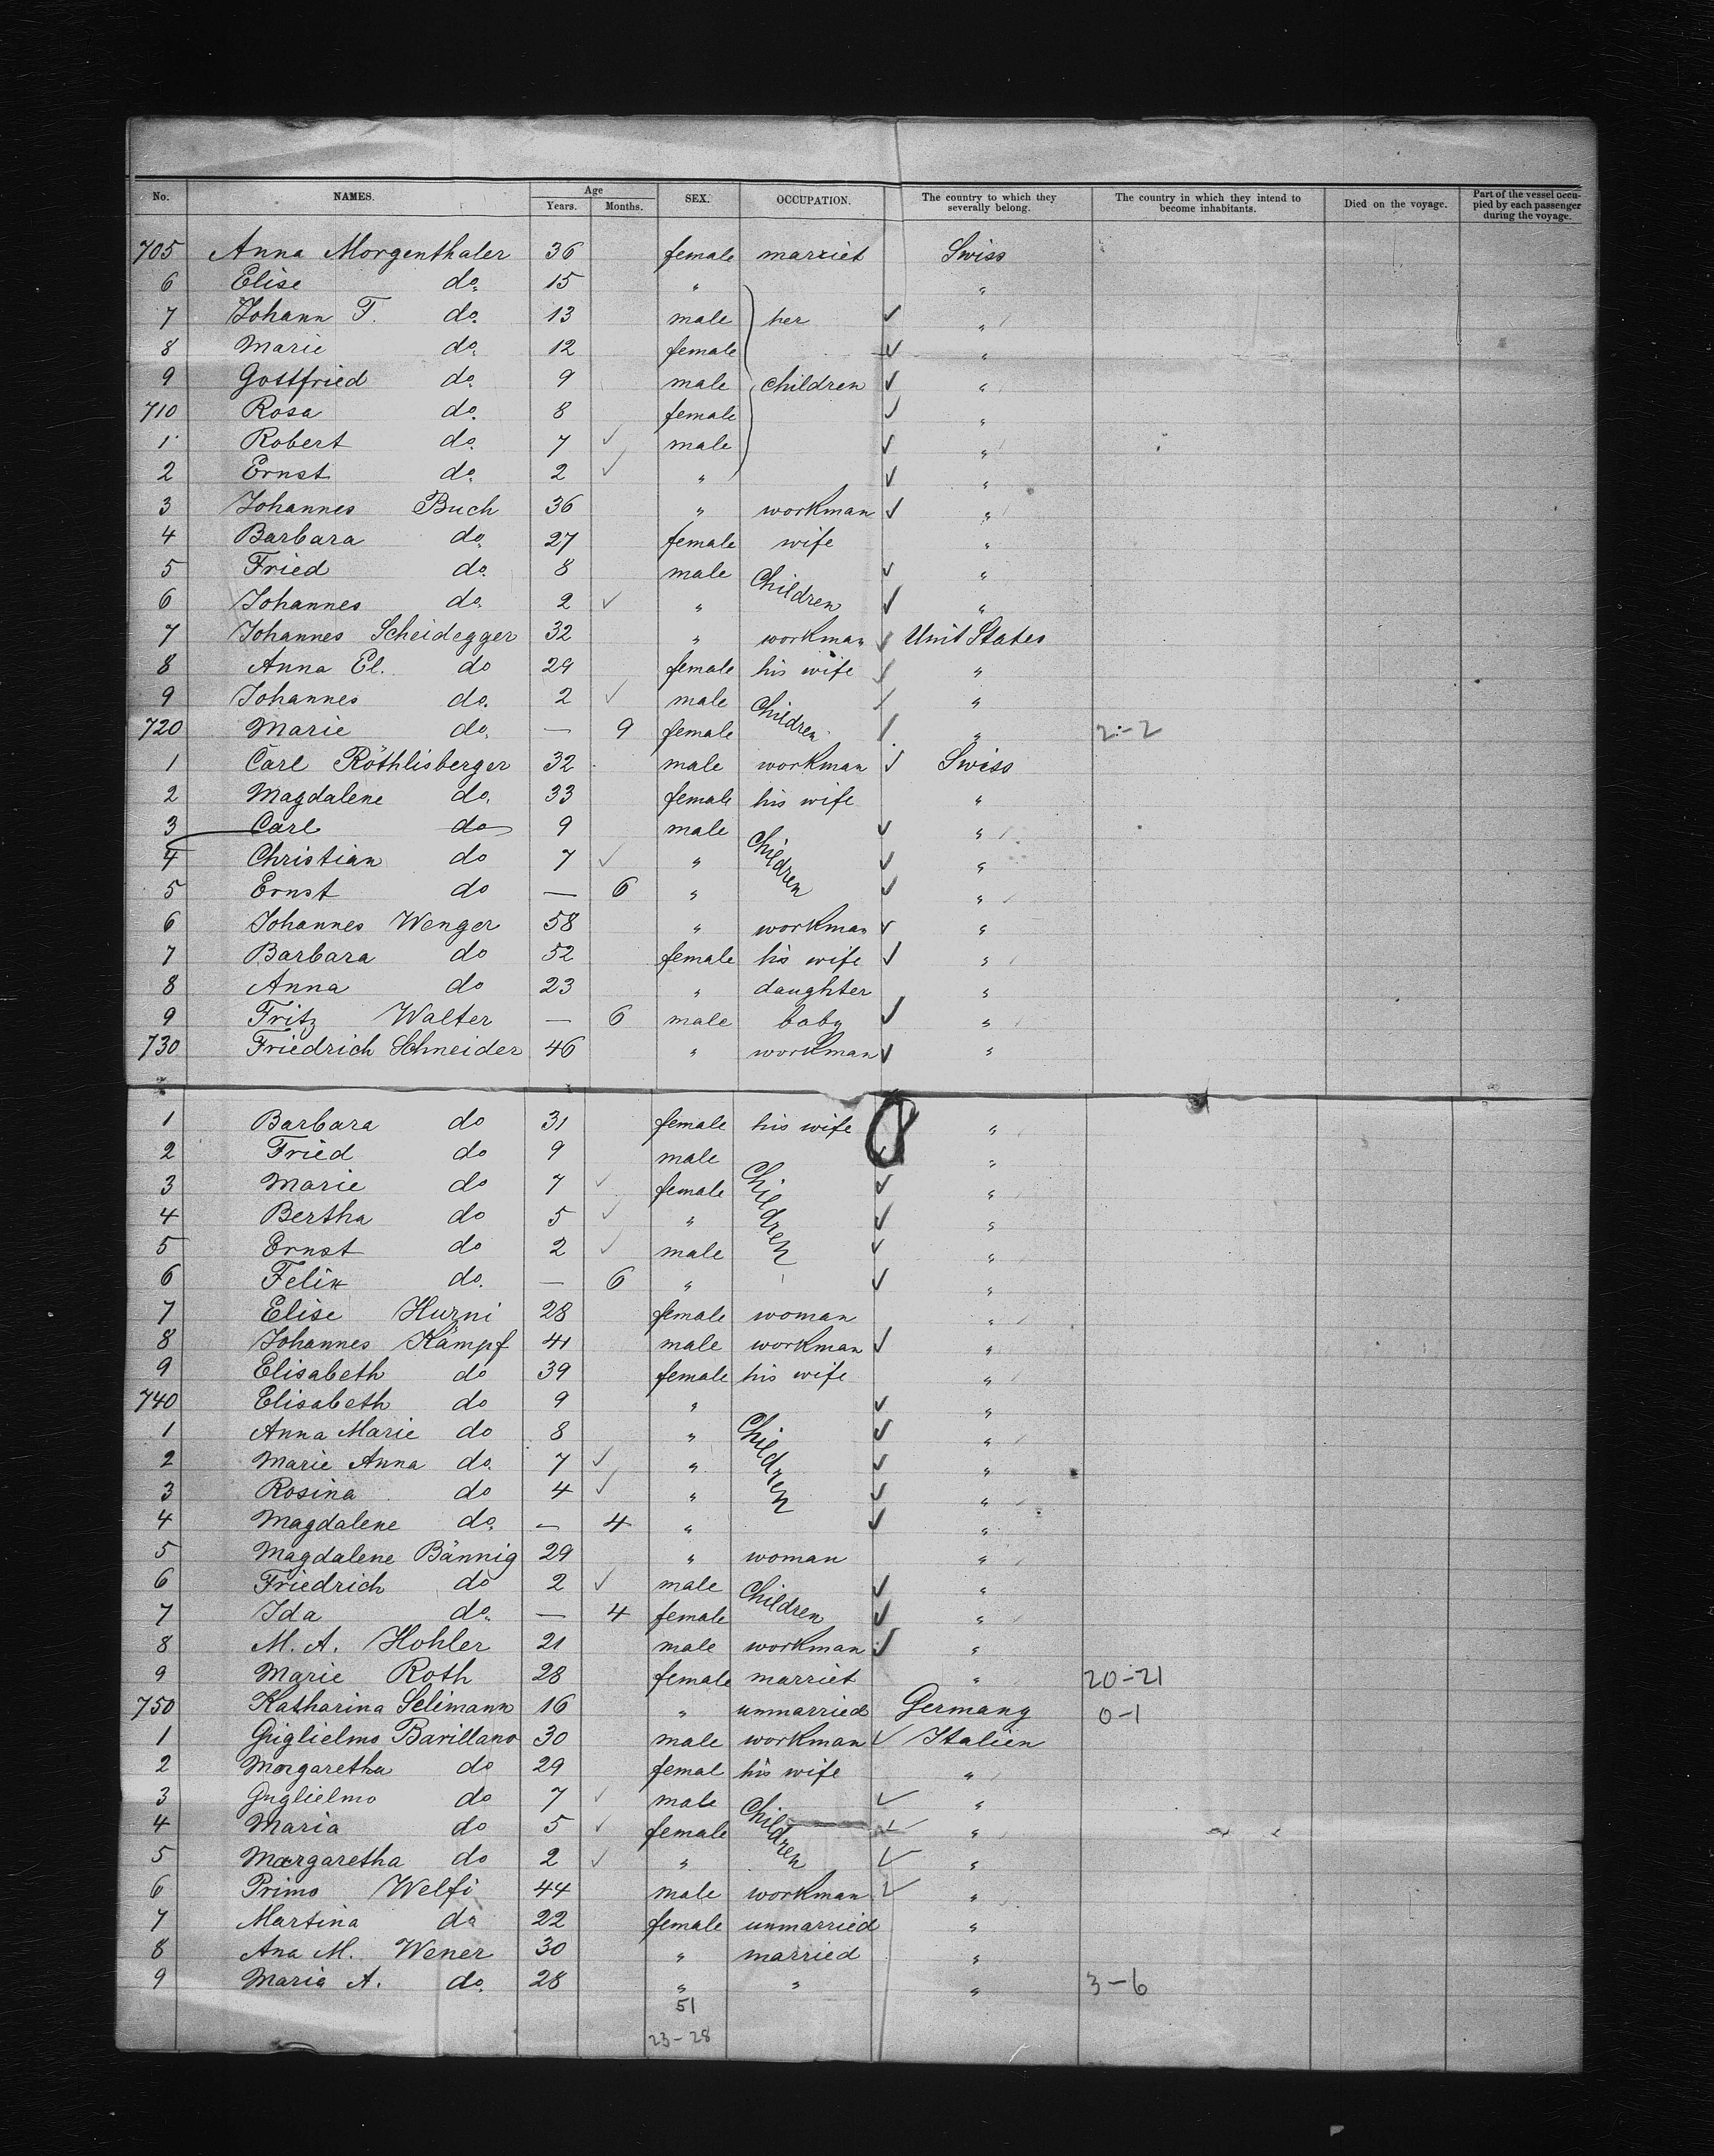 No. NAMES. Age Years. Months. SEX. OCCUPATION. The country to which they severally belong. The country in which they intend to become inhabitants. Died on the voyage. Part of the vessel occupied by each passenger during the voyage.
705 Anna Morgenthaler 36 female marriet Swiss
6 Elise do. 15 " "
7 Johann F. do. 13 male her ✓ "
8 Marie do. 12 female ✓ "
9 Gottfried do. 9 male children ✓ "
710 Rosa do. 8 female ✓ "
1 Robert do. 7 ✓ male ✓ "
2 Ernst do. 2 ✓ " ✓ "
3 Johannes Buch 36 " workman ✓ "
4 Barbara do. 27 female wife "
5 Fried do. 8 male Children ✓ "
6 Johannes do. 2 ✓ " ✓ "
7 Johannes Scheidegger 32 " workman ✓ Unit States
8 Anna El. do 29 female his wife ✓ "
9 Johannes do. 2 ✓ male Children ✓ "
720 Marie do. — 9 female ✓ " 2-2
1 Carl Röthlisberger 32 male workman ✓ Swiss
2 Magdalene do. 33 female his wife "
3 Carl do 9 male Children ✓ "
4 Christian do 7 ✓ " ✓ "
5 Ernst do — 6 " ✓ "
6 Johannes Wenger 58 " workman ✓ "
7 Barbara do 52 female his wife ✓ "
8 Anna do 23 " daughter "
9 Fritz Walter — 6 male baby ✓ "
730 Friedrich Schneider 46 " workman ✓ "
1 Barbara do 31 female his wife "
2 Fried do 9 male Children ✓ "
3 Marie do 7 ✓ female ✓ "
4 Bertha do 5 ✓ " ✓ "
5 Ernst do 2 ✓ male ✓ "
6 Felix do. — 6 " ✓ "
7 Elise Hurni 28 female woman "
8 Johannes Kämpf 41 male workman ✓ "
9 Elisabeth do 39 female his wife "
740 Elisabeth do 9 " Children ✓ "
1 Anna Marie do 8 " ✓ "
2 Marie Anna do. 7 ✓ " ✓ "
3 Rosina do 4 ✓ " ✓ "
4 Magdalene do. — 4 " ✓ "
5 Magdalene Bännig 29 " woman "
6 Friedrich do 2 ✓ male Children ✓ "
7 Ida do. — 4 female ✓ "
8 M. A. Hohler 21 male workman ✓ "
9 Marie Roth 28 female marriet " 20-21
750 Katharina Selimann 16 " unmarried Germany 0-1
1 Guglielmo Barillano 30 male workman ✓ Italien
2 Margaretha do 29 femal his wife "
3 Guglielmo do 7 ✓ male Children ✓ "
4 Maria do 5 ✓ female ✓ "
5 Margaretha do 2 ✓ " ✓ "
6 Primo Welfi 44 male workman ✓ "
7 Martina do 22 female unmarried "
8 Ana M. Wener 30 " married "
9 Maria A. do. 28 " " " 3-6
51
23-28